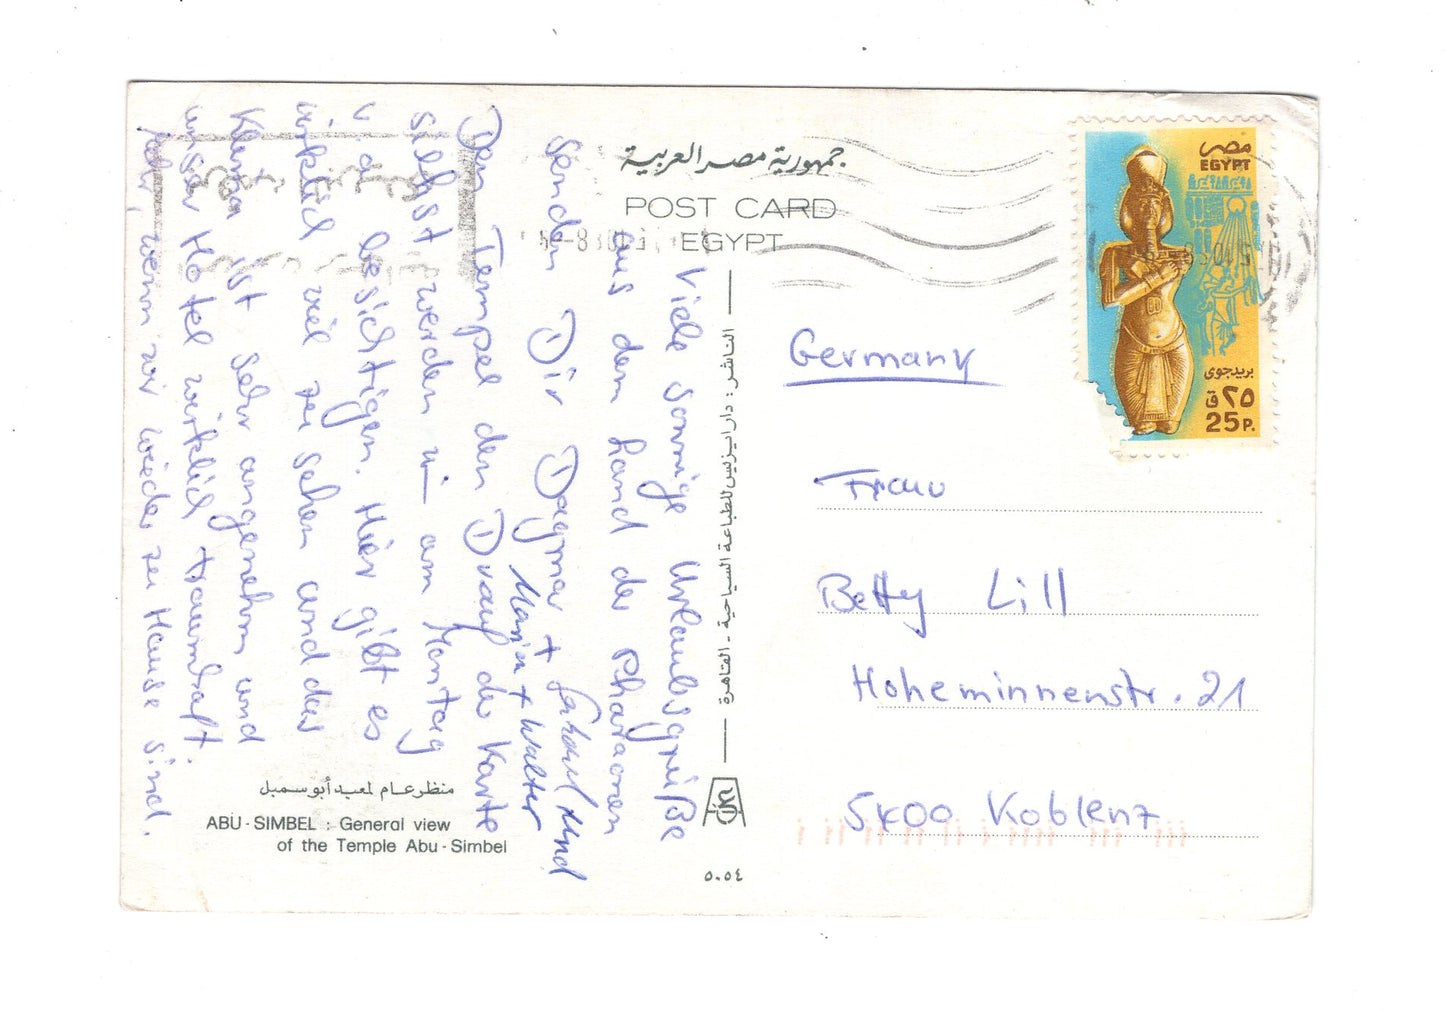 جمهورية مصر العربية
POST CARD
EGYPT
مصر
EGYPT
بريد جوى
٢٥ ق
25 P.
Viele sonnige Urlaubsgrüße
aus dem Land der Pharaonen
senden Dir Dagmar + und
Marion + Walter
Den Tempel den Drauf der Karte
selbst werden wir am Montag
besichtigen. Hier gibt es
wirklich viel zu sehen und das
Klima ist sehr angenehm und
unser Hotel wirklich traumhaft.
wenn wir wieder zu Hause sind.
الناشر : دار ايزيس للطباعة السياحية - القاهرة
Germany
Frau
Betty Lill
Hoheminnenstr. 21
5400 Koblenz
منظر عام لمعبد أبو سمبل
ABU - SIMBEL : General view
of the Temple Abu - Simbel
٥٠٥٤